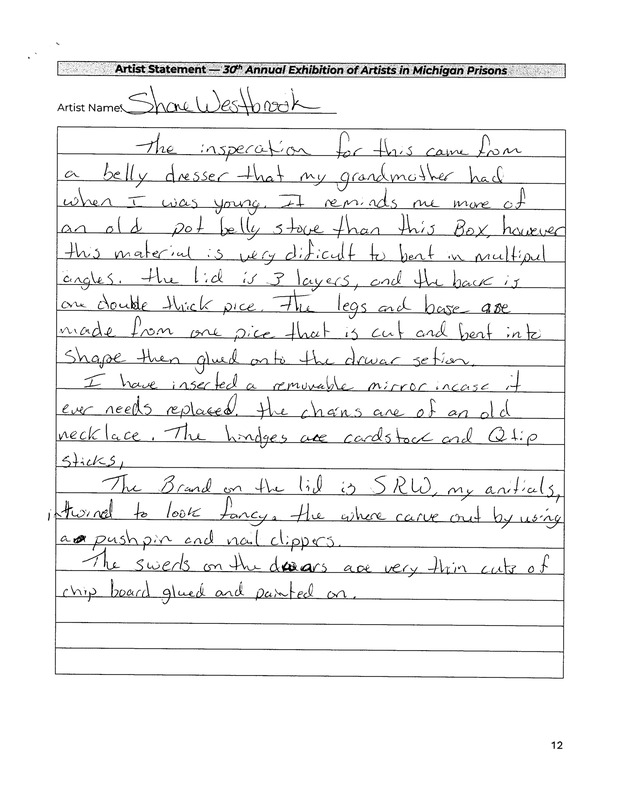 Artist Statement — 30th Annual Exhibition of Artists in Michigan Prisons
Artist Name: Shane Westbrook
The insperation for this came from
a belly dresser that my grandmother had
when I was young. It reminds me more of
an old pot belly stove than this Box, however
this material is very dificult to bent in multipul
angles. the lid is 3 layers, and the back is
one double thick pice. The legs and base are
made from one pice that is cut and bent into
shape then glued onto the drwar setion.
I have inserted a removable mirror incase it
ever needs replaced. the chains are of an old
necklace. The hindges are cardstock and Qtip
sticks,
The Brand on the lid is SRW, my anitials,
intwind to look fancy. the where carve out by using
a pushpin and nail clippers.
The swerls on the drwars are very thin cuts of
chip board glued and painted on.
12